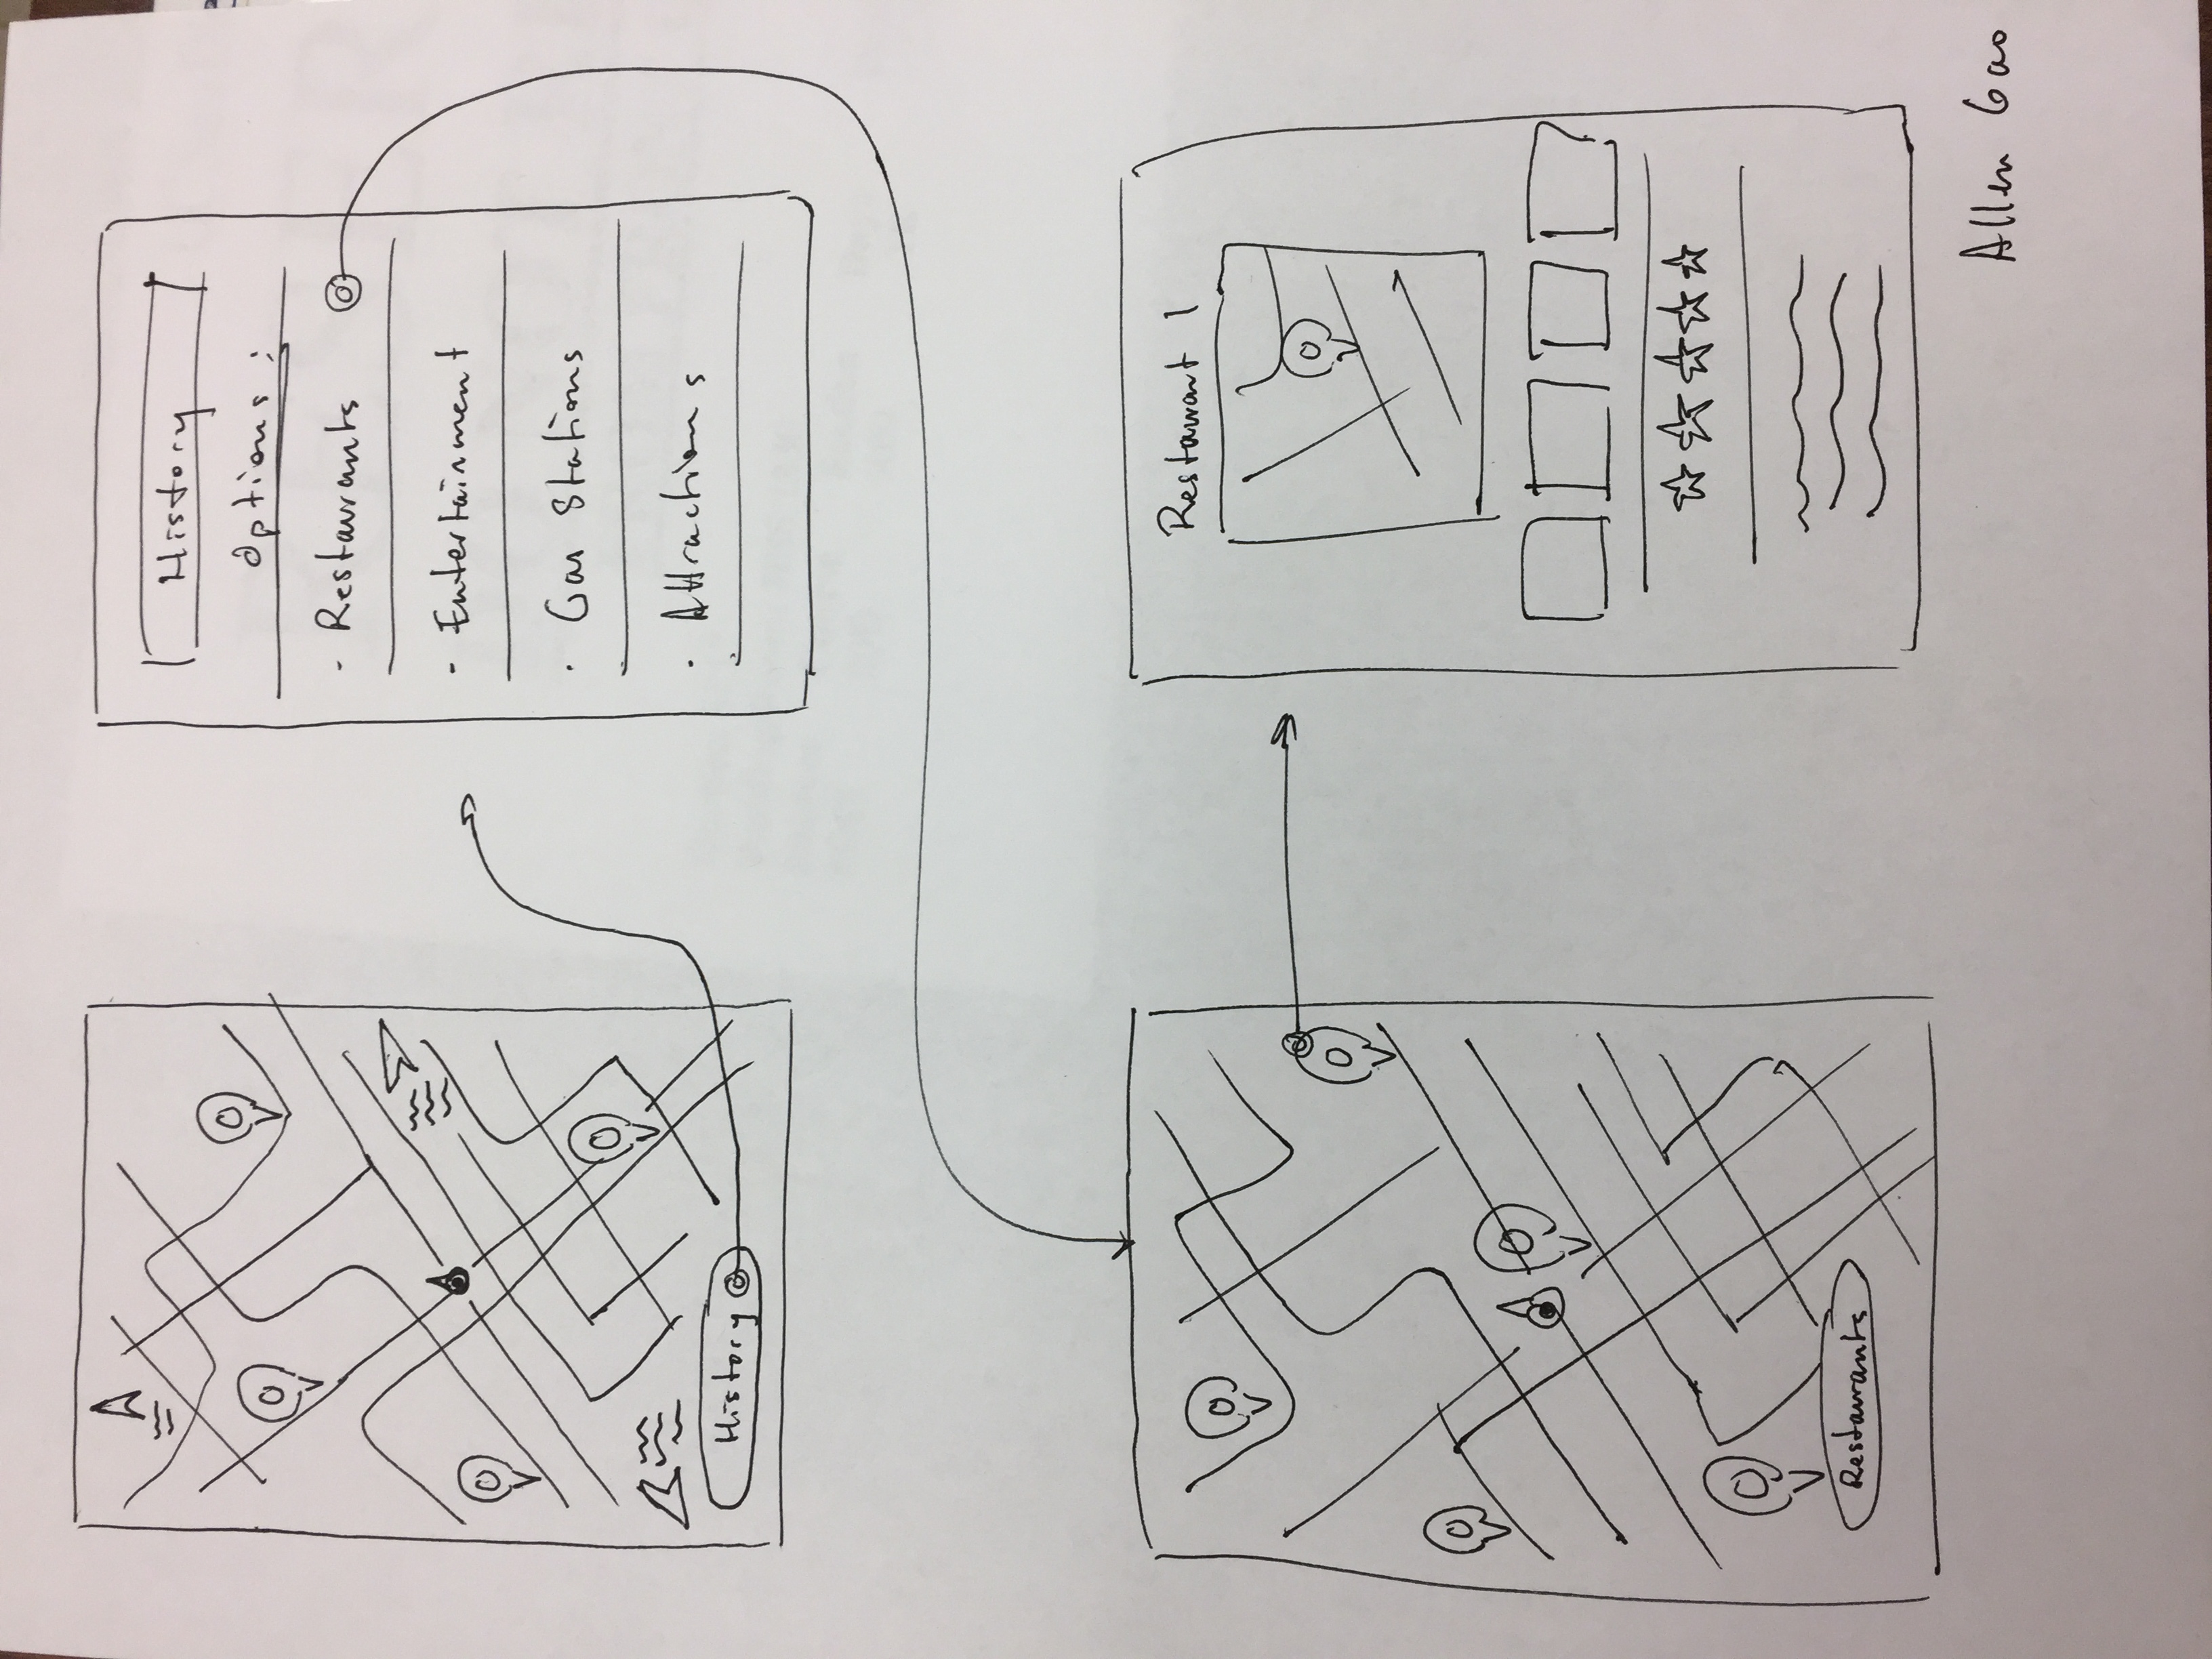 History
History
Options :
- Restaurants
- Entertainment
· Gas Stations
· Attractions
Restaurants
Restaurant 1
Allen Gao